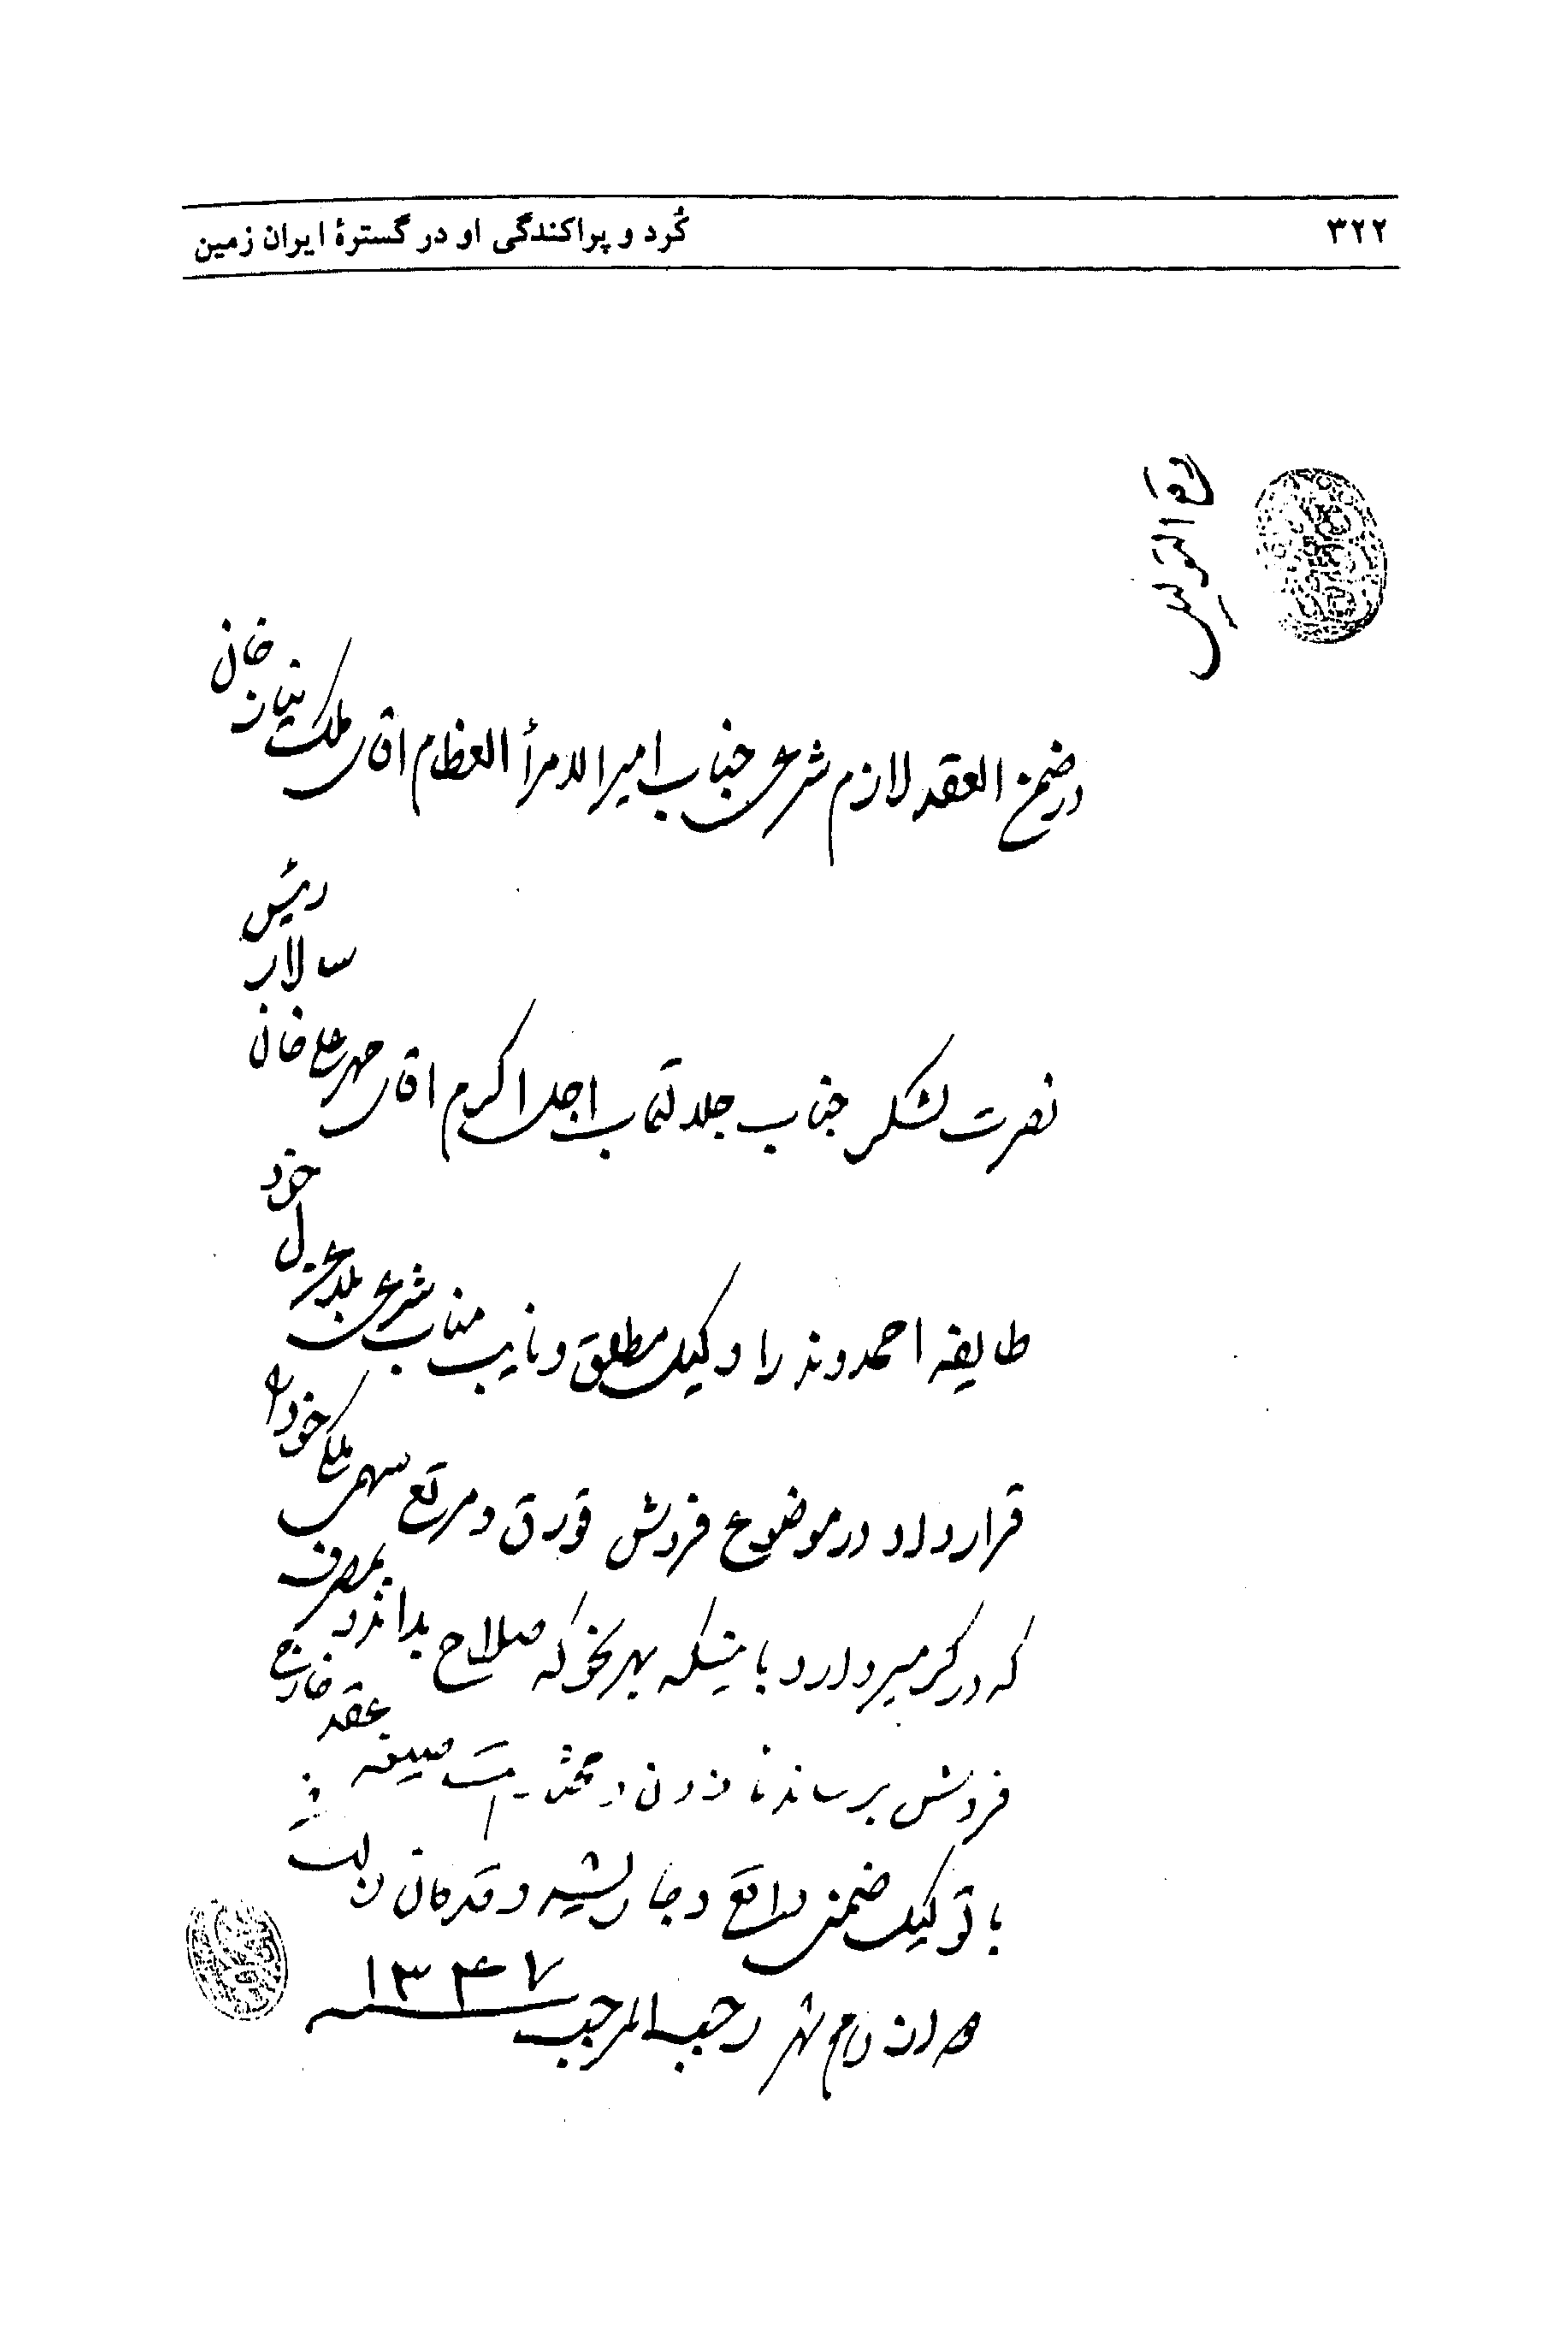 ۳۲۲
کُرد و پراکندگی او در گسترهٔ ایران زمین
در ضمن العقد لازم شرعی جناب امیرالامرأ العظام اقای ملک نیاز خان
نصرت لشکر جناب جلالتمآب اجل اکرم اقای مهرعلی خان سالار رئیس
طایفه احمدوند را وکیل مطلق و نایب مناب شرعی بلاعزل خود
قرار داد در موضوع فروش قورق و مرتع سهمی ملکی خود را
که در گرمسیر دارد باینکه بهر نحو که صلاح بدانند بمصرف
فروش برسانند صیغه بعقد خارج
با توکیل ضمنی واقع و جاری شد و قد کان ذلک
شهر رجب المرجب ۱۳۴۷